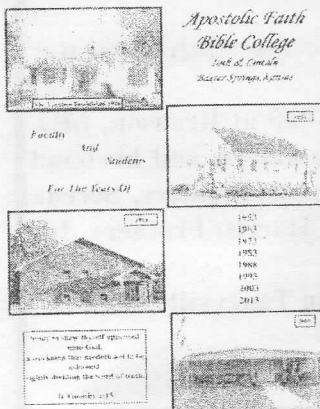 Apostolic Faith
Bible College
10th & Lincoln
Baxter Springs, Kansas
Faculty
And
Students
For The Years Of
1953
1963
1973
1983
1988
1993
2003
2013
Study to shew thyself approved
unto God,
a workman that needeth not to be
ashamed
rightly dividing the word of truth.
II Timothy 2:15